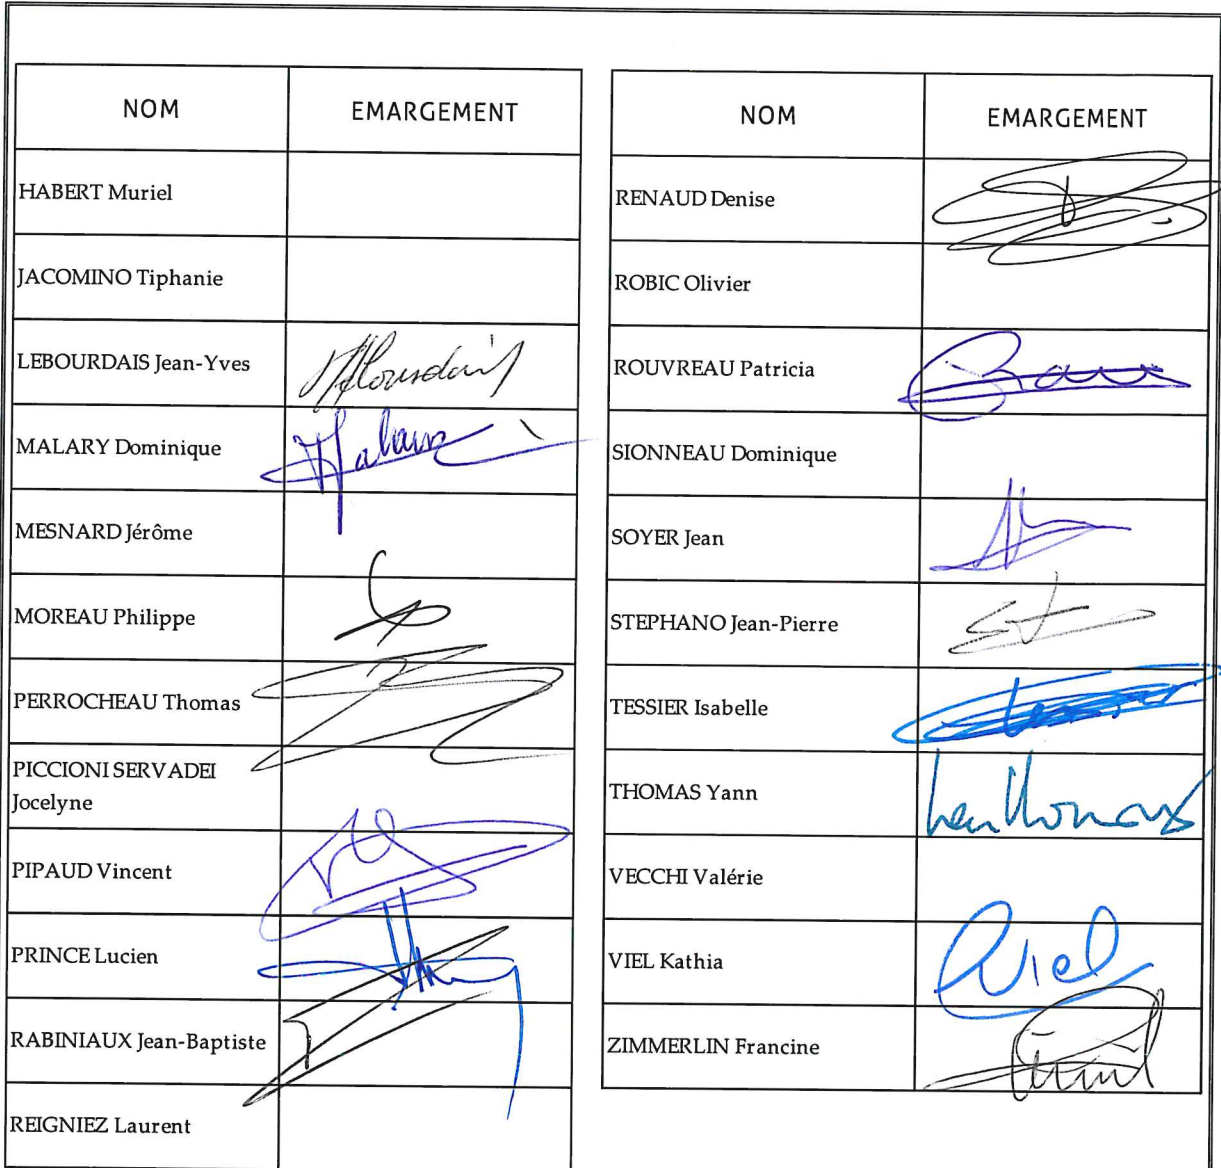 NOM EMARGEMENT
HABERT Muriel
JACOMINO Tiphanie
LEBOURDAIS Jean-Yves
MALARY Dominique
MESNARD Jérôme
MOREAU Philippe
PERROCHEAU Thomas
PICCIONI SERVADEI
Jocelyne
PIPAUD Vincent
PRINCE Lucien
RABINIAUX Jean-Baptiste
REIGNIEZ Laurent
NOM EMARGEMENT
RENAUD Denise
ROBIC Olivier
ROUVREAU Patricia
SIONNEAU Dominique
SOYER Jean
STEPHANO Jean-Pierre
TESSIER Isabelle
THOMAS Yann
VECCHI Valérie
VIEL Kathia Viel
ZIMMERLIN Francine